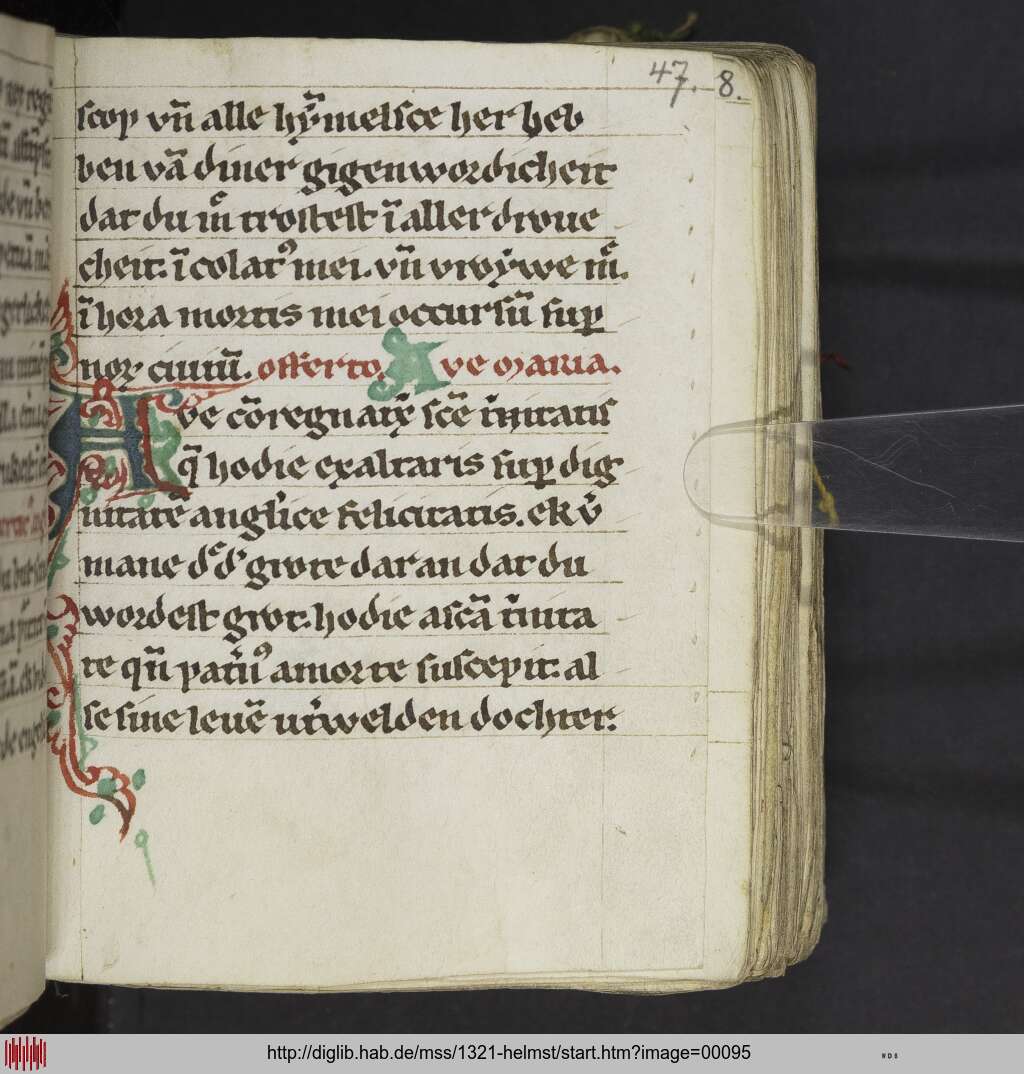 47. 8.
scop vñ alle hẏmelsce her heb
ben vā diner gigenwordicheit
dat du mͤ trostest ī aller drove
cheit. ī colatꝰ mei. vñ vrovwe mͤ.
ī hora mortis mei occursū sup
noꝝ ciuiū. offerto. Ave maria.
Ave cōregnatͥx scē tͥnitatis
q̄ hodie exaltaris sup dig
nitatē anglͥice felicitatis. ek v̾
mane dͤ dͬ grote daran dat du
wordest grot. hodie a scā tͥnita
te qn̄ patͥuꝰ a morte suscepit. al
se sine levē utͥwelden dochter.
http://diglib.hab.de/mss/1321-helmst/start.htm?image=00095